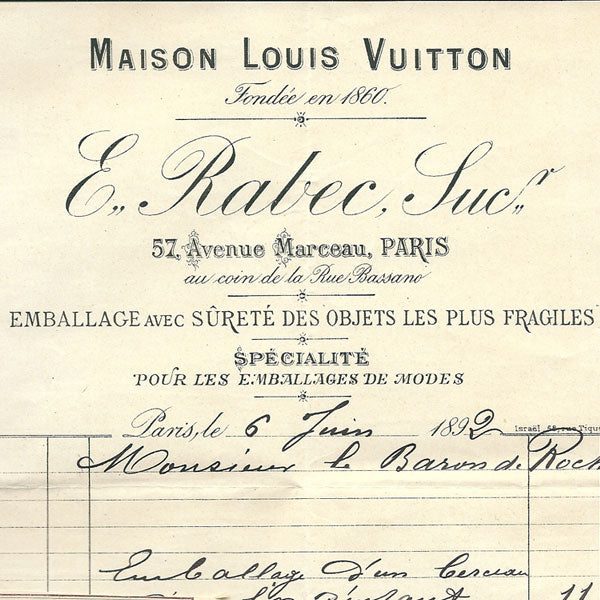 MAISON LOUIS VUITTON
Fondée en 1860.
E. Rabec, Sucr
57, Avenue Marceau, PARIS
au coin de la Rue Bassano
EMBALLAGE AVEC SÛRETÉ DES OBJETS LES PLUS FRAGILES
SPÉCIALITÉ
POUR LES EMBALLAGES DE MODES
Paris, le 6 Juin 1892
Monsieur le Baron de Roch
Emballage d'un berceau
11